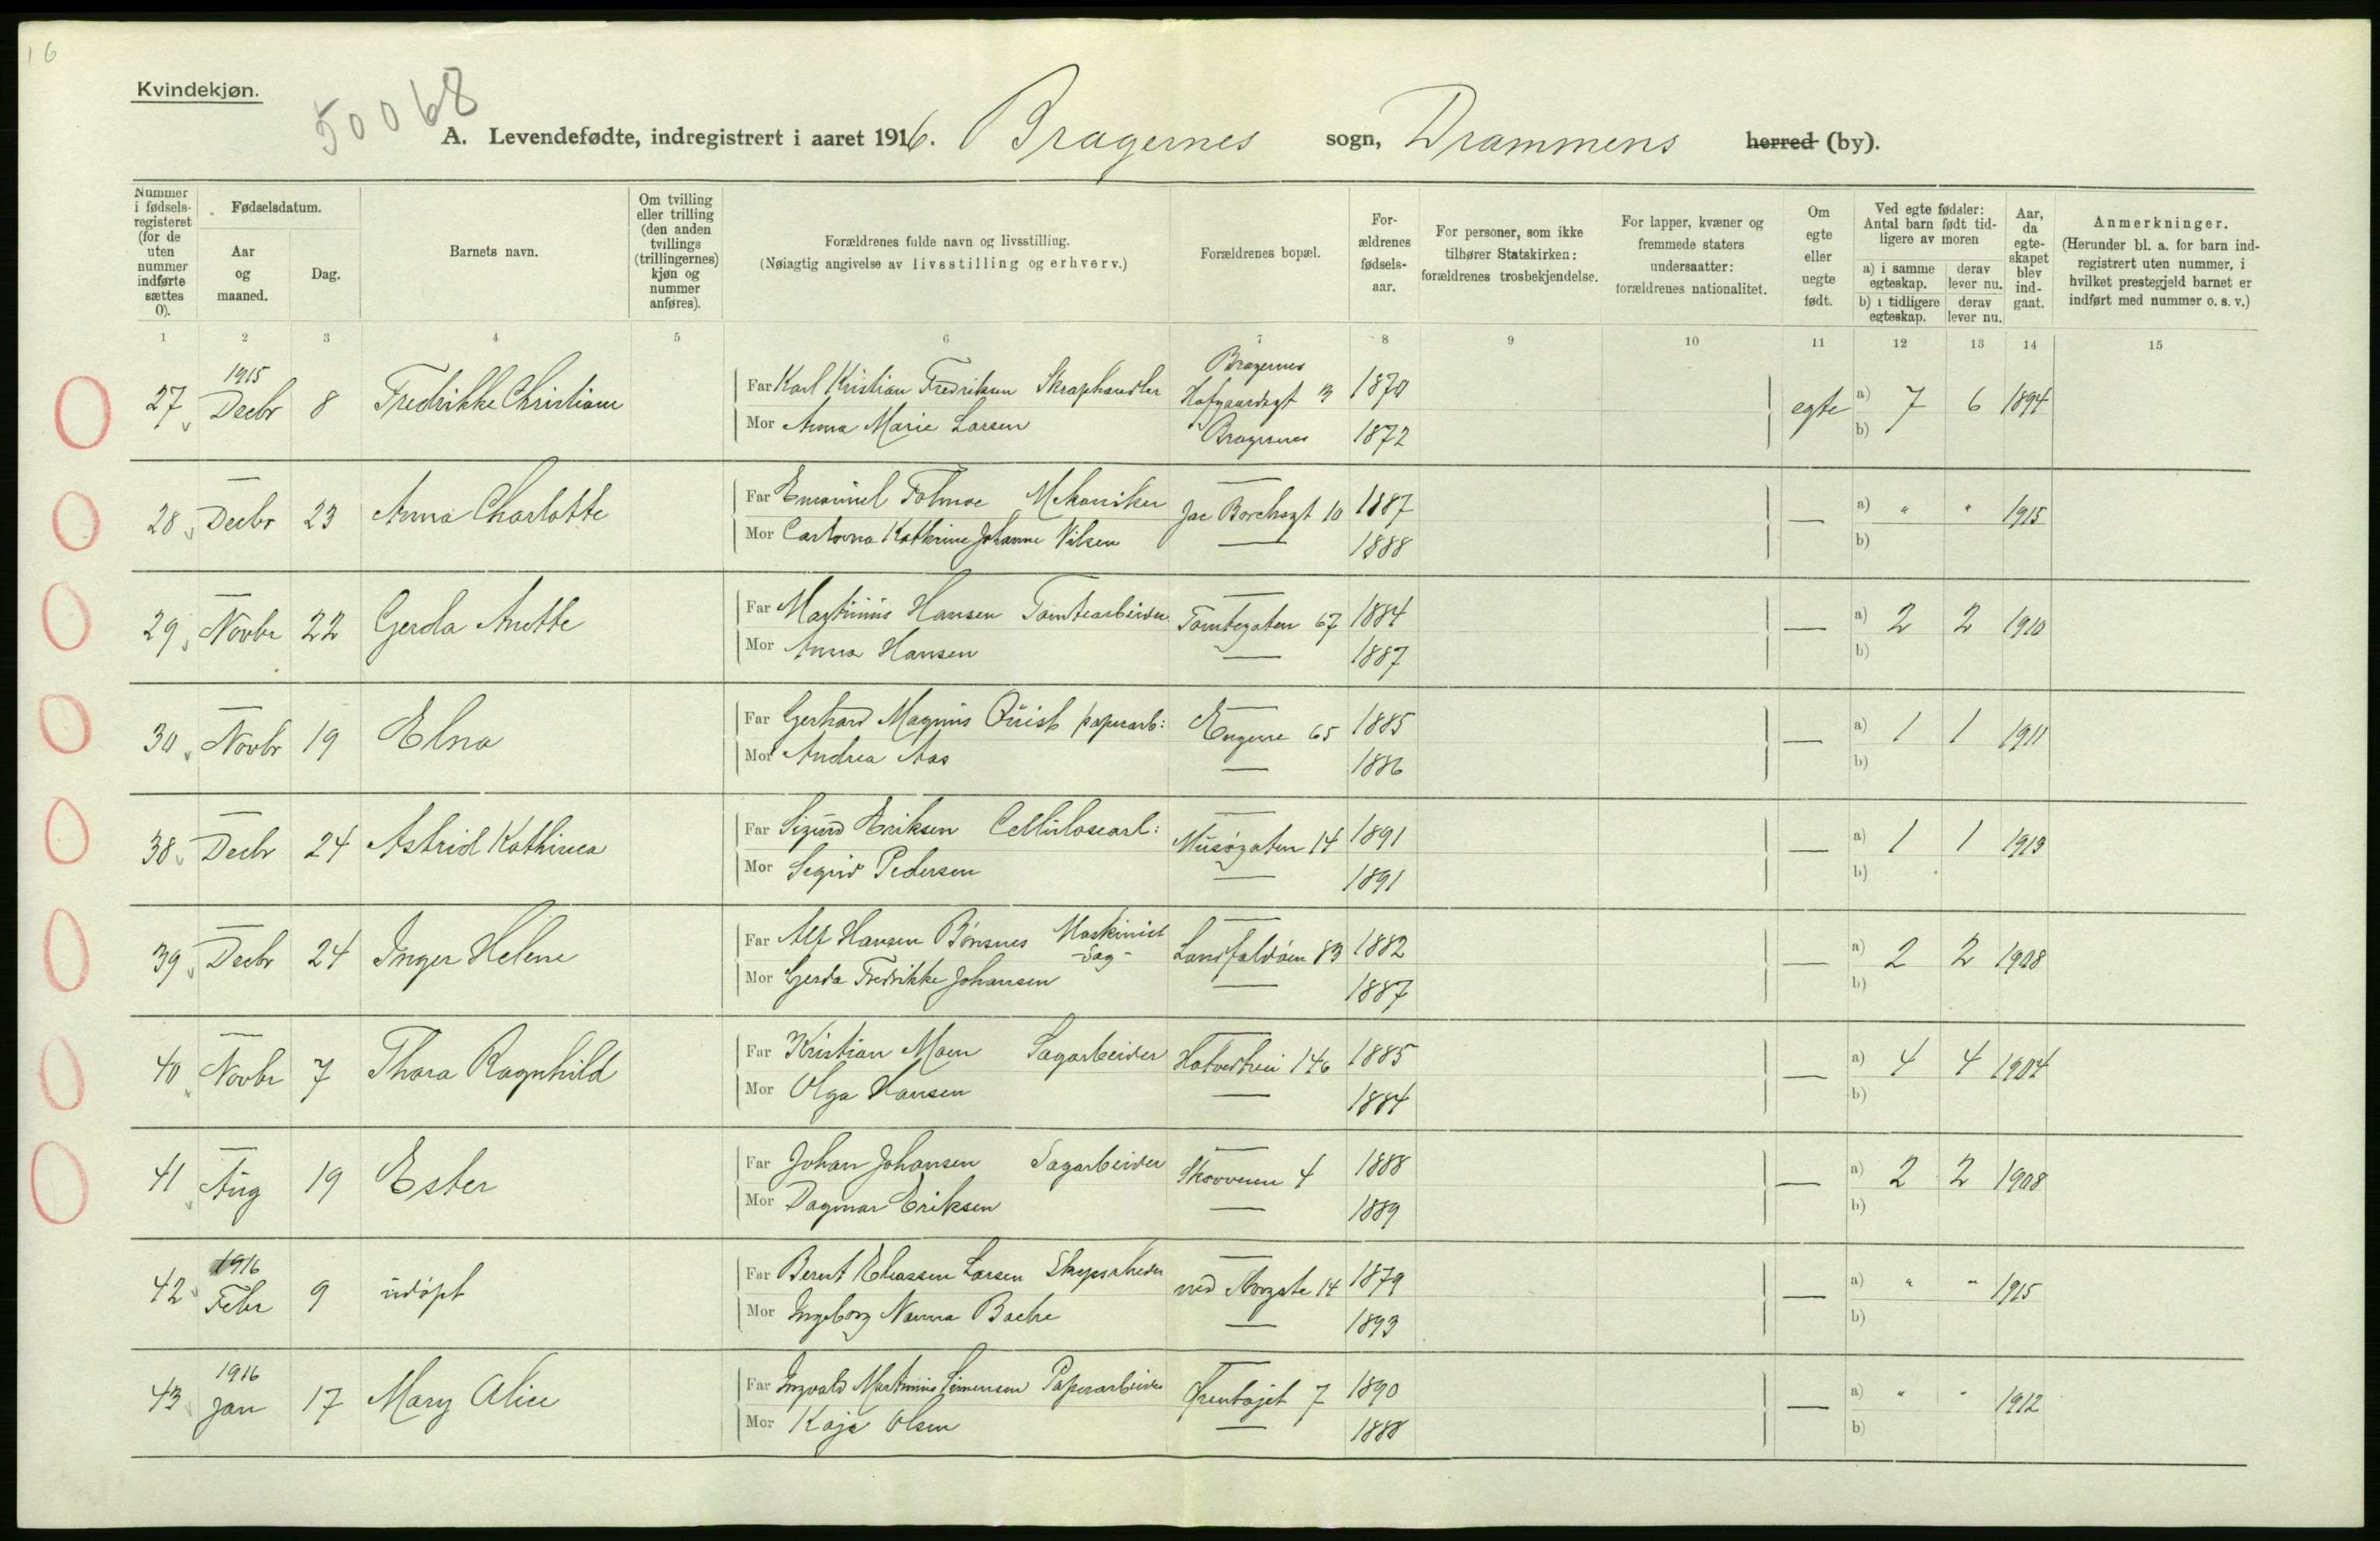 16
Kvindekjøn.
50068
A. Levendefødte, indregistrert i aaret 1916. Bragernes sogn, Drammens herred (by).
Nummer i fødsels-registeret (for de uten nummer indførte sættes 0).
Fødselsdatum.
Aar og maaned.
Dag.
Barnets navn.
Om tvilling eller trilling (den anden tvillings (trillingernes) kjøn og nummer anføres).
Forældrenes fulde navn og livsstilling.
(Nøiagtig angivelse av livsstilling og erhverv.)
Forældrenes bopæl.
For-ældrenes fødsels-aar.
For personer, som ikke tilhører Statskirken: forældrenes trosbekjendelse.
For lapper, kvæner og fremmede staters undersaatter: forældrenes nationalitet.
Om egte eller uegte født.
Ved egte fødsler: Antal barn født tid-ligere av moren
a) i samme egteskap. derav lever nu.
b) i tidligere egteskap. derav lever nu.
Aar, da egte-skapet blev ind-gaat.
Anmerkninger.
(Herunder bl. a. for barn ind-registrert uten nummer, i hvilket prestegjeld barnet er indført med nummer o. s. v.)
1 2 3 4 5 6 7 8 9 10 11 12 13 14 15
27 1915 Decbr 8 Fredrikke Christiane
Far Karl Kristian Fredriksen Skraphandler Bragernes Hofgaardsgt 13 1870
Mor Anna Marie Larsen Bragernes 1872
egte a) 7 6 1894
b)
28 — Decbr 23 Anna Charlotte
Far Emanuel Tolmoe Mekaniker — Jac Borchsgt 10 1887
Mor Kathrine Johanne Nilsen — 1888
— a) " " 1915
b)
29 — Novbr 22 Gerda Anette
Far Martinius Hansen Tomtearbeider — Tomtegaten 67 1884
Mor Anna Hansen — 1887
— a) 2 2 1910
b)
30 — Novbr 19 Elna
Far Gerhard Magnus Quist paperarb: — Engene 65 1885
Mor Andrea Aas — 1886
— a) 1 1 1911
b)
38 — Decbr 24 Astrid Kathinca
Far Sigurd Eriksen Cellulosearb: — 14 1891
Mor Sigrid Pedersen — 1891
— a) 1 1 1913
b)
39 — Decbr 24 Inger Helene
Far Alf Hansen Bönsnes Maskinist -Sag- — Landfaldöen 83 1882
Mor Gerda Fredrikke Johansen — 1887
— a) 2 2 1908
b)
40 — Novbr 7 Thora Ragnhild
Far Kristian Moen Sagarbeider — 146 1885
Mor Olga Hansen — 1884
— a) 4 4 1904
b)
41 — Aug 19 Ester
Far Johan Johansen Sagarbeider — Skovveien 4 1888
Mor Dagmar Eriksen — 1889
— a) 2 2 1908
b)
42 1916 Febr 9 udöpt
Far Bernt Eliassen Larsen — 14 1879
Mor Ingeborg Nanna Bache — 1893
— a) " " 1915
b)
43 1916 Jan 17 Mary Alice
Far Ingvald Martinius Simensen Paperarbeider — 7 1890
Mor Kaja Olsen — 1888
— a) " " 1912
b)